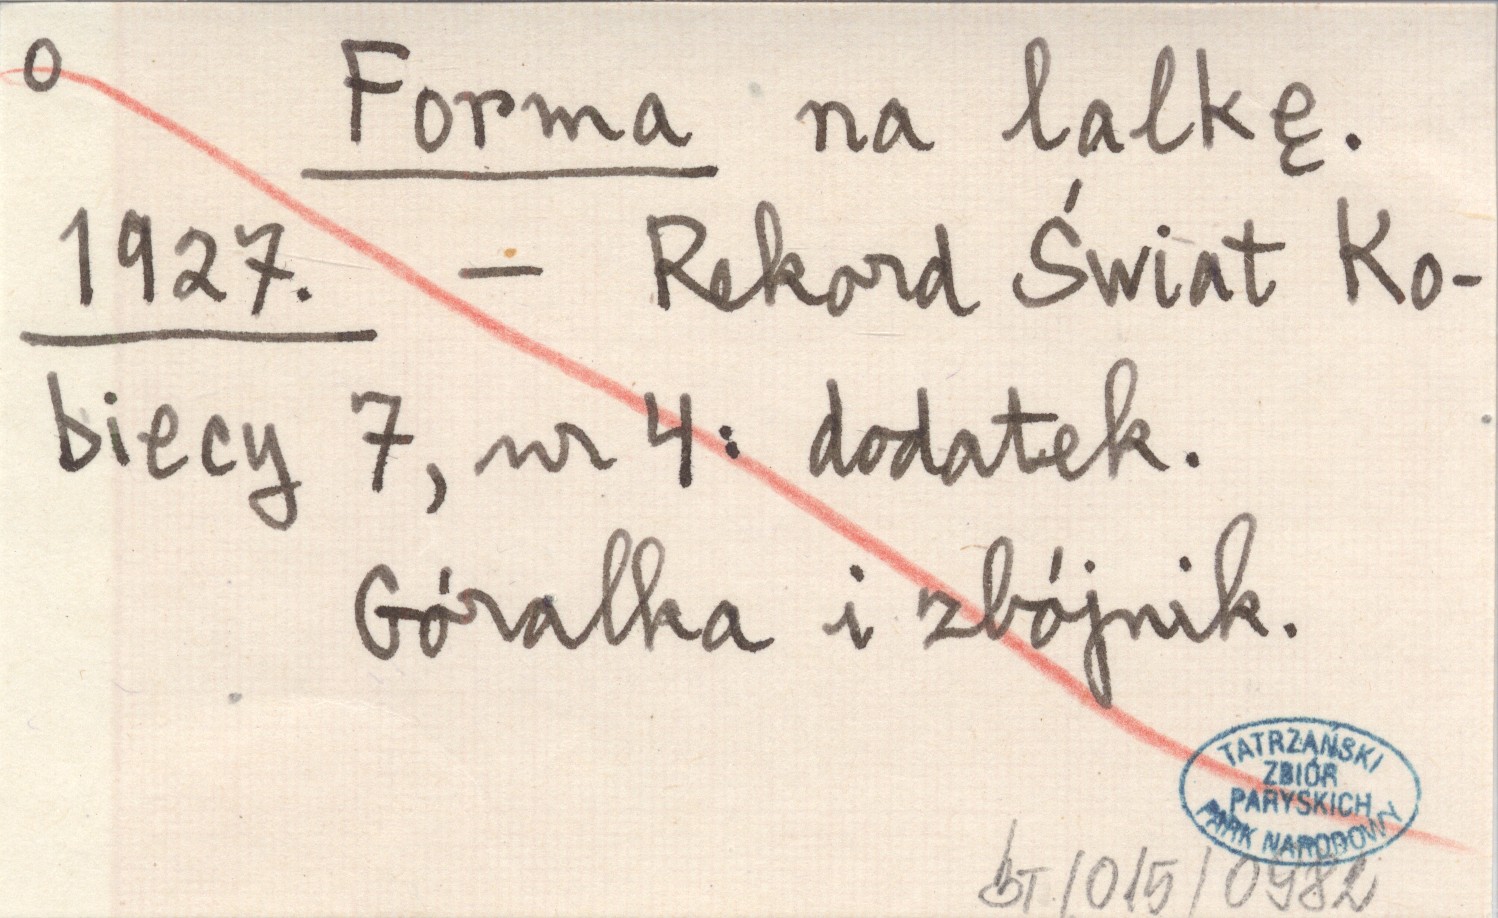 o Forma na lalkę.
1927. – Rekord Świat Ko-
biecy 7, nr 4: dodatek.
Góralka i zbójnik.
TATRZAŃSKI
ZBIÓR
PARYSKICH
PARK NARODOWY
BT/015/0982